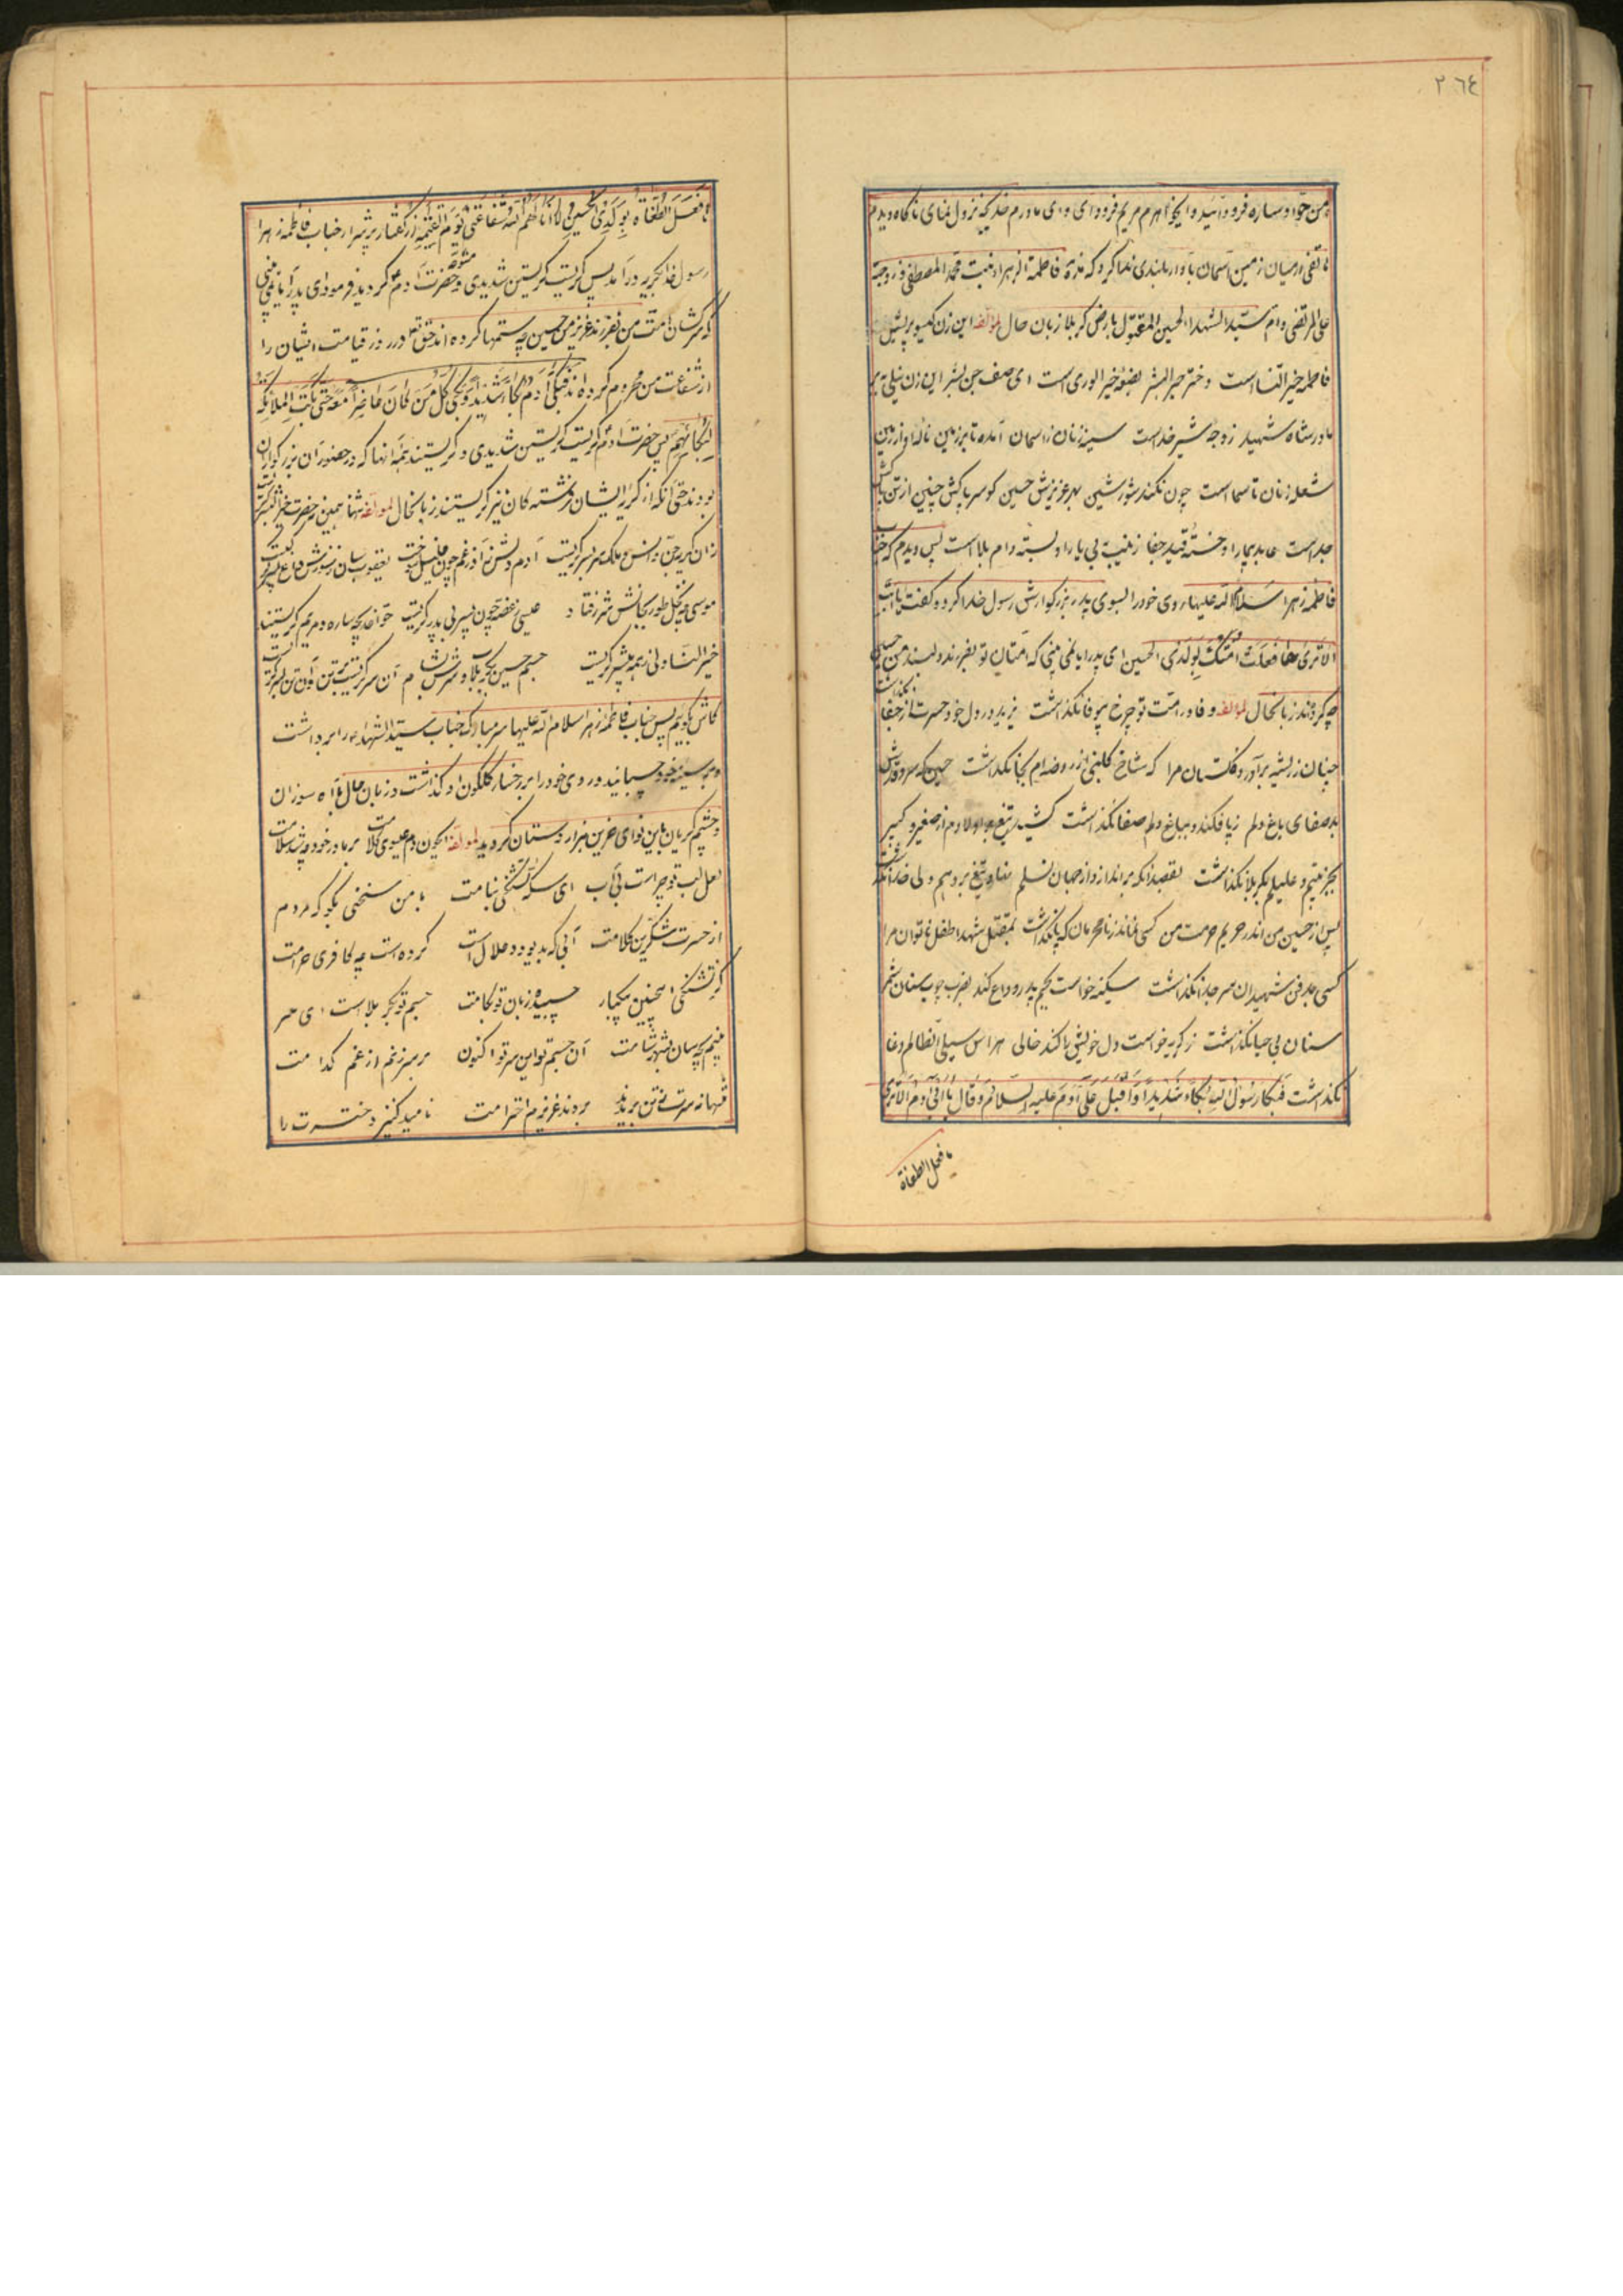 ٢٦٤
من حوا و ساره فرود آئید و ایخواهرم مریم فرود ای و ای مادرم خدیجه نزول نمای ناکاه دیدم
هاتفی از میان زمین و آسمان باواز بلندی ندا کرد که هذه فاطمة الزهرا بنت محمد المصطفی و زوجة
علی المرتضی و ام سید الشهدا الحسین المقتول بارض کربلا زبان حال لمؤلفه این زن کیسو پریش
فاطمه خیر النسا است دختر خیر البشر بضعه خیر الوری است ای صف جن و بشر این زن نیلی
مادر شاه شهید زوجه شیر خداست سینه زنان ز آسمان آمده تا بر زمین ناله او از زمین
شعله زنان تا سما است چون نکند شور و شین بهر عزیزش حسین کو سر پاکش چنین از تن پاکش
جداست عابد بیمار او خسته قید جفا زینب بی یار او بسته دام بلا است پس دیدم که جناب
فاطمه زهرا سلام الله علیها روی خود را بسوی پدر بزرکوارش رسول خدا کرد و کفت یا ابت
الا تری ما فعلت امتک بولدی الحسین ای پدر ایا نمی بینی که امتان تو بفرزند دلبند من حسین
چه کردند زبانحال لمؤلفه وفا در امت تو چرخ بیوفا نکذاشت یزید در دل خود حسرت از جفا نکذاشت
چنان ز ریشه برآورد کلستان مرا که شاخ کلبنی از روضه ام بجا نکذاشت حسین که سرو قدش
بد صفای باغ دلم ز پا فکند و بباغ دلم صفا نکذاشت کشید تیغ و ز اولادم از صغیر و کبیر
بجز یتیم و علیلم بکربلا نکذاشت بقصد آنکه براندازد از جهان نسلم نهاد تیغ بر ویهم ولی خدا نکذاشت
پس از حسین من اندر حریم حرمت من کسی نماند ز نامحرمان که پا نکذاشت بمقتل شهدا طفل ناتوان مرا
کسی بدفن شهیدان سر جدا نکذاشت سکینه خواست بجسم پدر وداع کند بضرب چوب سنان شمر
سنان بی حیا نکذاشت ز کریه خواست دل خویش را کند خالی هراس سیلی آن ظالم دغا
نکذاشت فبکا رسول الله بکاء شدیدا و اقبل علی آدم علیه السلام و قال یا ابی آدم الا تری
ما فعل الطغاة
ما فعل الطغاة بولدی الحسین لا انالهم الله شفاعتی یوم القیمة از کفتار پر شرار جناب فاطمه زهرا
رسول خدا بکریه درآمد پس کریست کریستن شدیدی و متوجه حضرت آدم کردید فرمود ای پدر ایا نمی بینی
که سرکشان امت من بفرزند عزیز من حسین چه ستمها کرده اند حق تعالی در روز قیامت ایشان را
از شفاعت من محروم کرده اند فبکی آدم بکاء شدیدا و بکی کل من کان حاضرا معه حتی بکت الملائکة
لبکائهم پس حضرت آدم کریست کریستن شدیدی و کریستند همه آنها که در حضور آن بزرکواران
بودند حتی آنکه از کریه ایشان فرشته کان نیز کریستند زبانحال لمؤلفه تنها نه همین حضرت خیر البشر کریست
زان کریه جن و انس و ملک سر بسر کریست آدم دلش ز آذر غم چون خلیل سوخت یعقوب سان ز سوزش داغ پسر کریست
موسی چو نخل طور بجانش شرر فتاد عیسی ز غصه چون پسر بی پدر کریست حوا خدیجه ساره و مریم کریستند
خیر النسا ولی ز همه بیشتر کریست جسم حسین بکربلا و سرش بشام آن سر کریست بر تن و آن تن بسر کریست
کاش بکویم پس جناب فاطمه زهرا سلام الله علیها سر مبارک جناب سید الشهدا را برداشت
و بر سینه خود چسبانید و روی خود را بر رخسار کلکون او کذاشت و زبان حال با آه سوزان
و چشم کریان باین نوای حزین هزار دستان کردید لمؤلفه ایکون دم عیسوی کلامت بر مادر خود چه شد سلامت
لعل لب تو چراست بی آب ای سکه تشنکی بنامت با من سخنی بکو که مردم
از حسرت شکرین کلامت آبی که بد بود و حلال است کرده است چه کافری حرامت
کز تشنکی اینچنین بیکبار چسبیده زبان تو بکامت جسم تو بکربلا است ای سر
بینم بچه سان بشهر شامت آن جسم تو این سر تو اکنون بر سر زنم از غم کدامت
تنها نه سرت ز تن بریدند بردند عزیزم احترامت نامید کنیز دخترت را